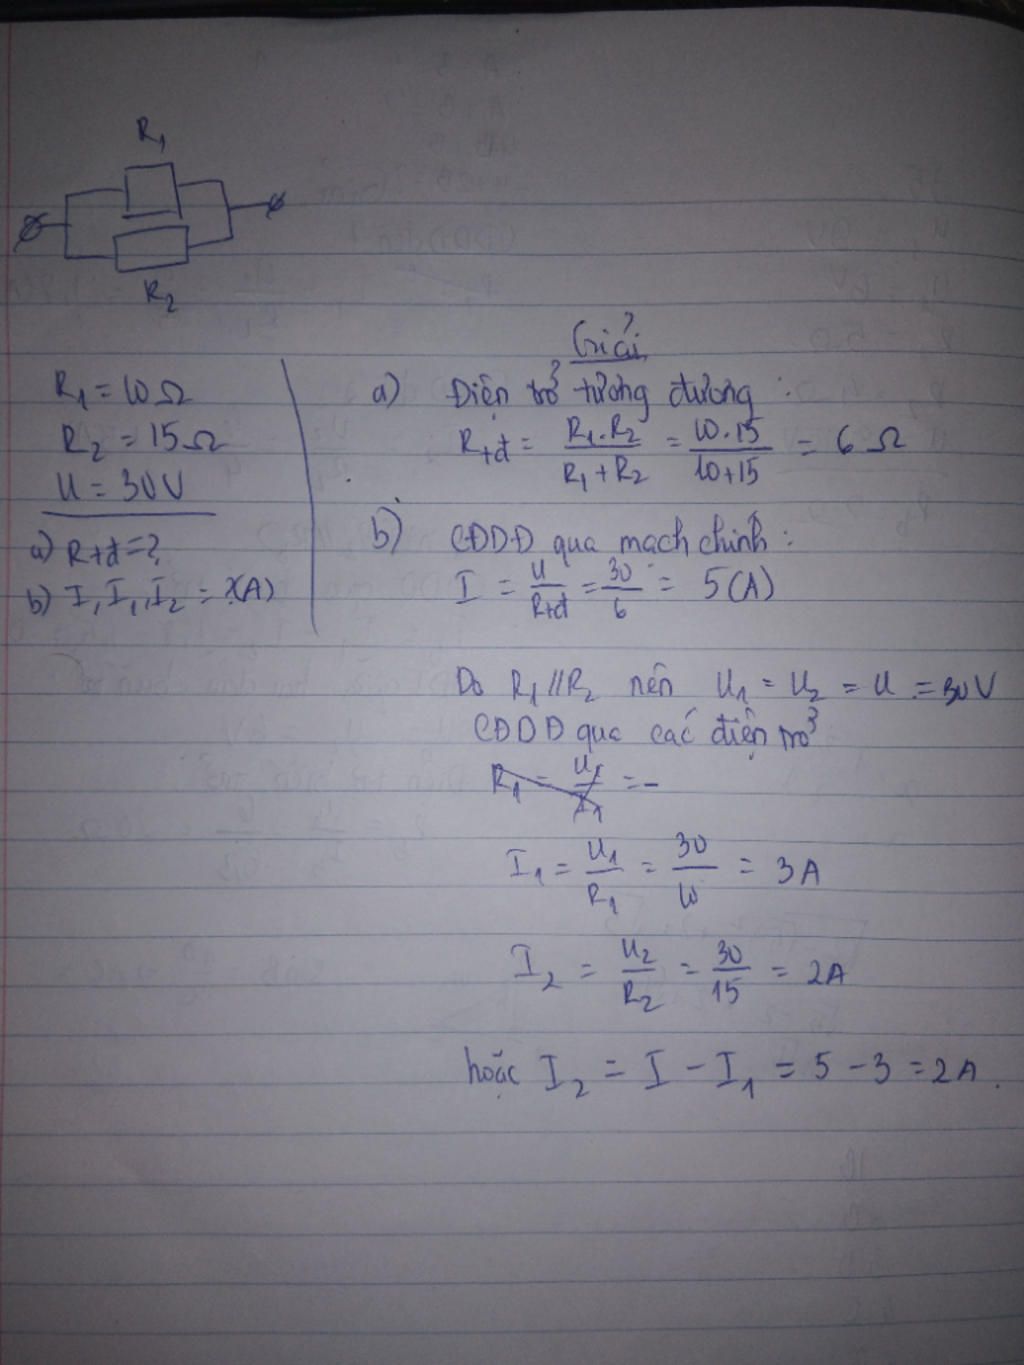 R₁
R₂
Giải
R₁ = 10Ω
R₂ = 15Ω
U = 30V
a) Rtđ = ?
b) I, I₁, I₂ = ?(A)
a) Điện trở tương đương :
Rtđ = R₁.R₂ / R₁+R₂ = 10.15 / 10+15 = 6 Ω
b) CĐDĐ qua mạch chính :
I = U / Rtđ = 30 / 6 = 5(A)
Do R₁ // R₂ nên U₁ = U₂ = U = 30V
CĐDĐ qua các điện trở
R₁ = U₁ / I₁ = -
I₁ = U₁ / R₁ = 30 / 10 = 3A
I₂ = U₂ / R₂ = 30 / 15 = 2A
hoặc I₂ = I - I₁ = 5 - 3 = 2A.